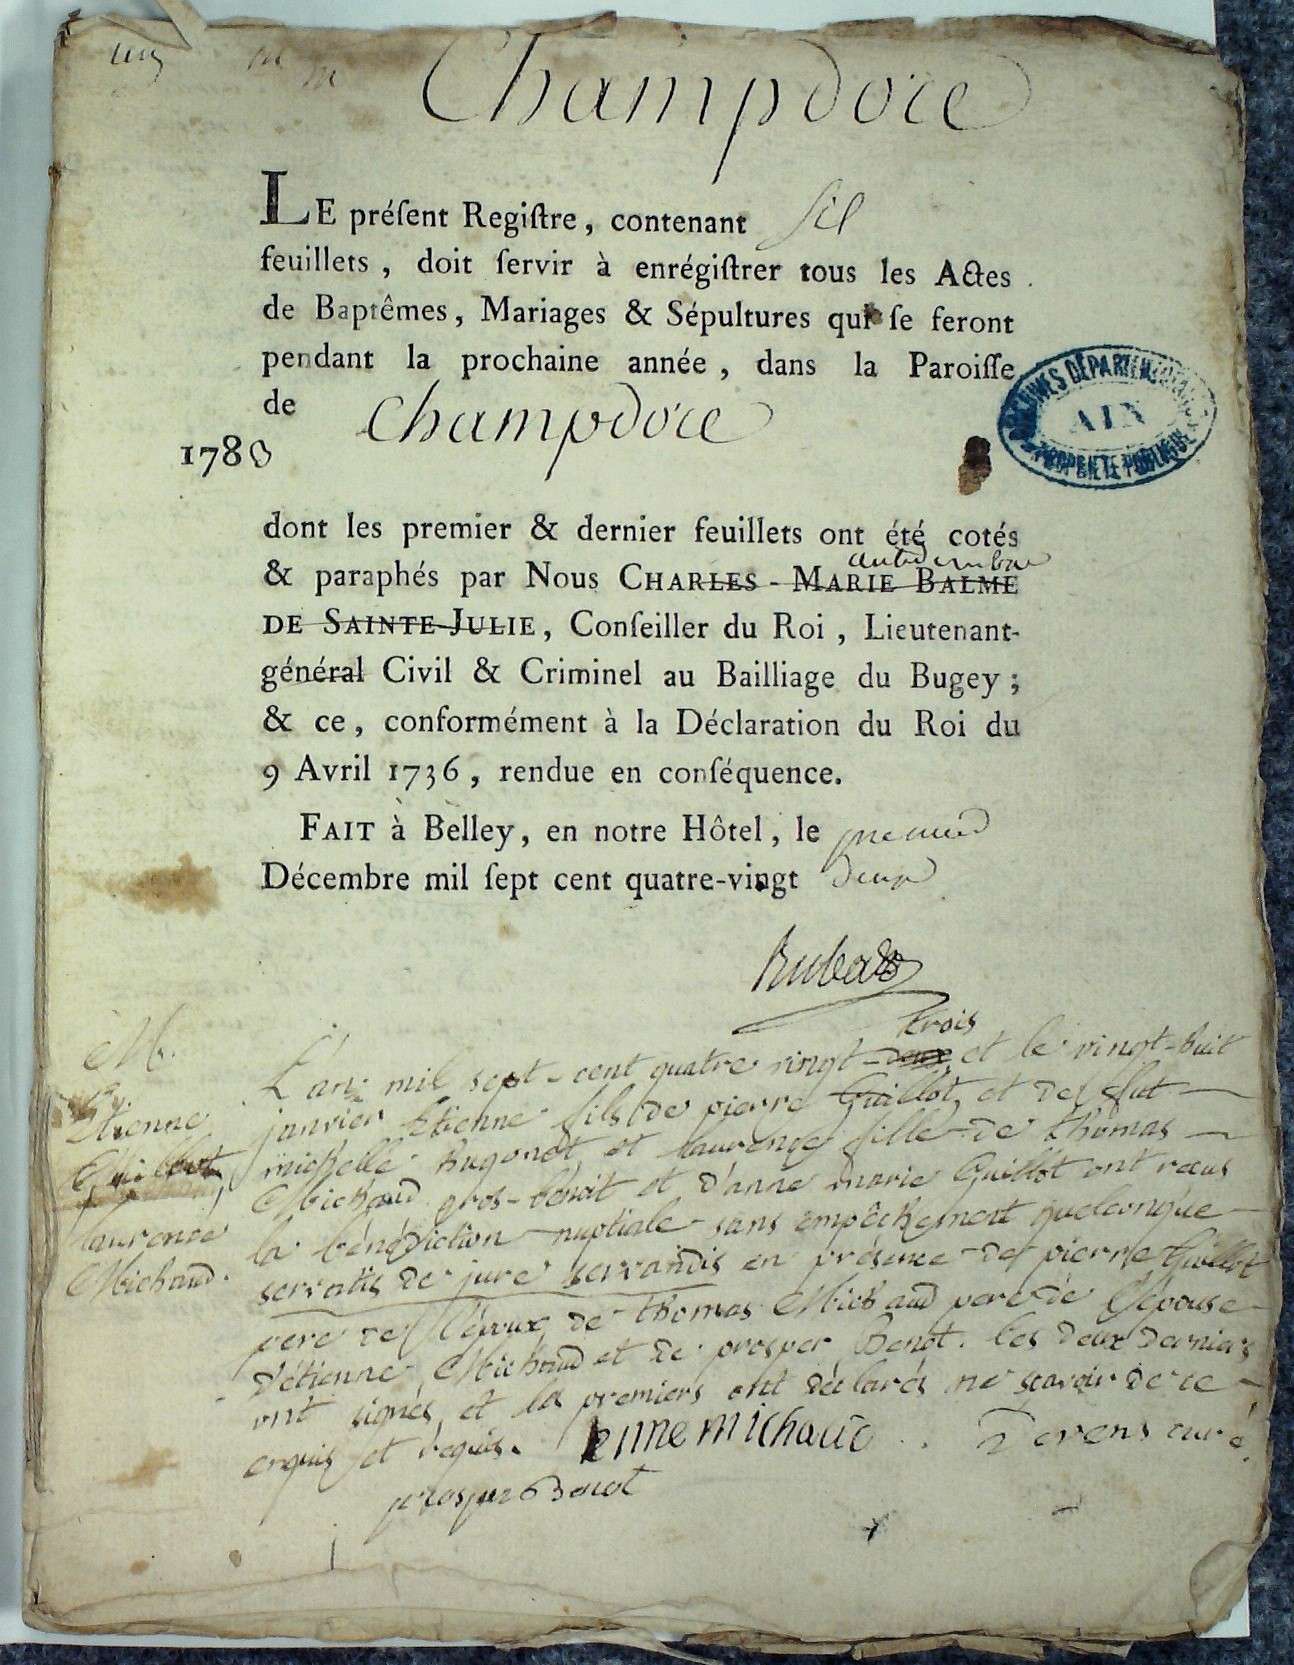 Champdore
LE préſent Regiſtre, contenant six
feuillets, doit ſervir à enrégiſtrer tous les Actes
de Baptêmes, Mariages & Sépultures qui ſe feront
pendant la prochaine année, dans la Paroiſſe
de Champdore
ARCHIVES DÉPARTEMENTALES
AIN
PROPRIETE PUBLIQUE
1783
dont les premier & dernier feuillets ont été cotés
& paraphés par Nous CHARLES-MARIE BALME
DE SAINTE-JULIE, Conſeiller du Roi, Lieutenant-
général Civil & Criminel au Bailliage du Bugey;
& ce, conformément à la Déclaration du Roi du
9 Avril 1736, rendue en conſéquence.
FAIT à Belley, en notre Hôtel, le premier
Décembre mil ſept cent quatre-vingt deux
M.
Etienne
Guillot
laurence
Michaud.
trois
L'an mil sept-cent quatre vingt-deux, et le vingt-huit
janvier Etienne fils de pierre Guillot, et de fut
michelle hugonet et laurence fille de thomas
Michaud gros-benoit et d'anne marie Guillot ont reçus
la bénédiction nuptiale sans empêchement quelconque
servatis de jure servandis en présence de pierre Guillot
pere de l'époux, de thomas Michaud pere de l'épouse
d'étienne Michaud et de prosper Benot. les deux derniers
ont signés, et les premiers ont déclarés ne sçavoir de ce
enquis et requis. Etienne michaud. Derens curé
prosper Benot